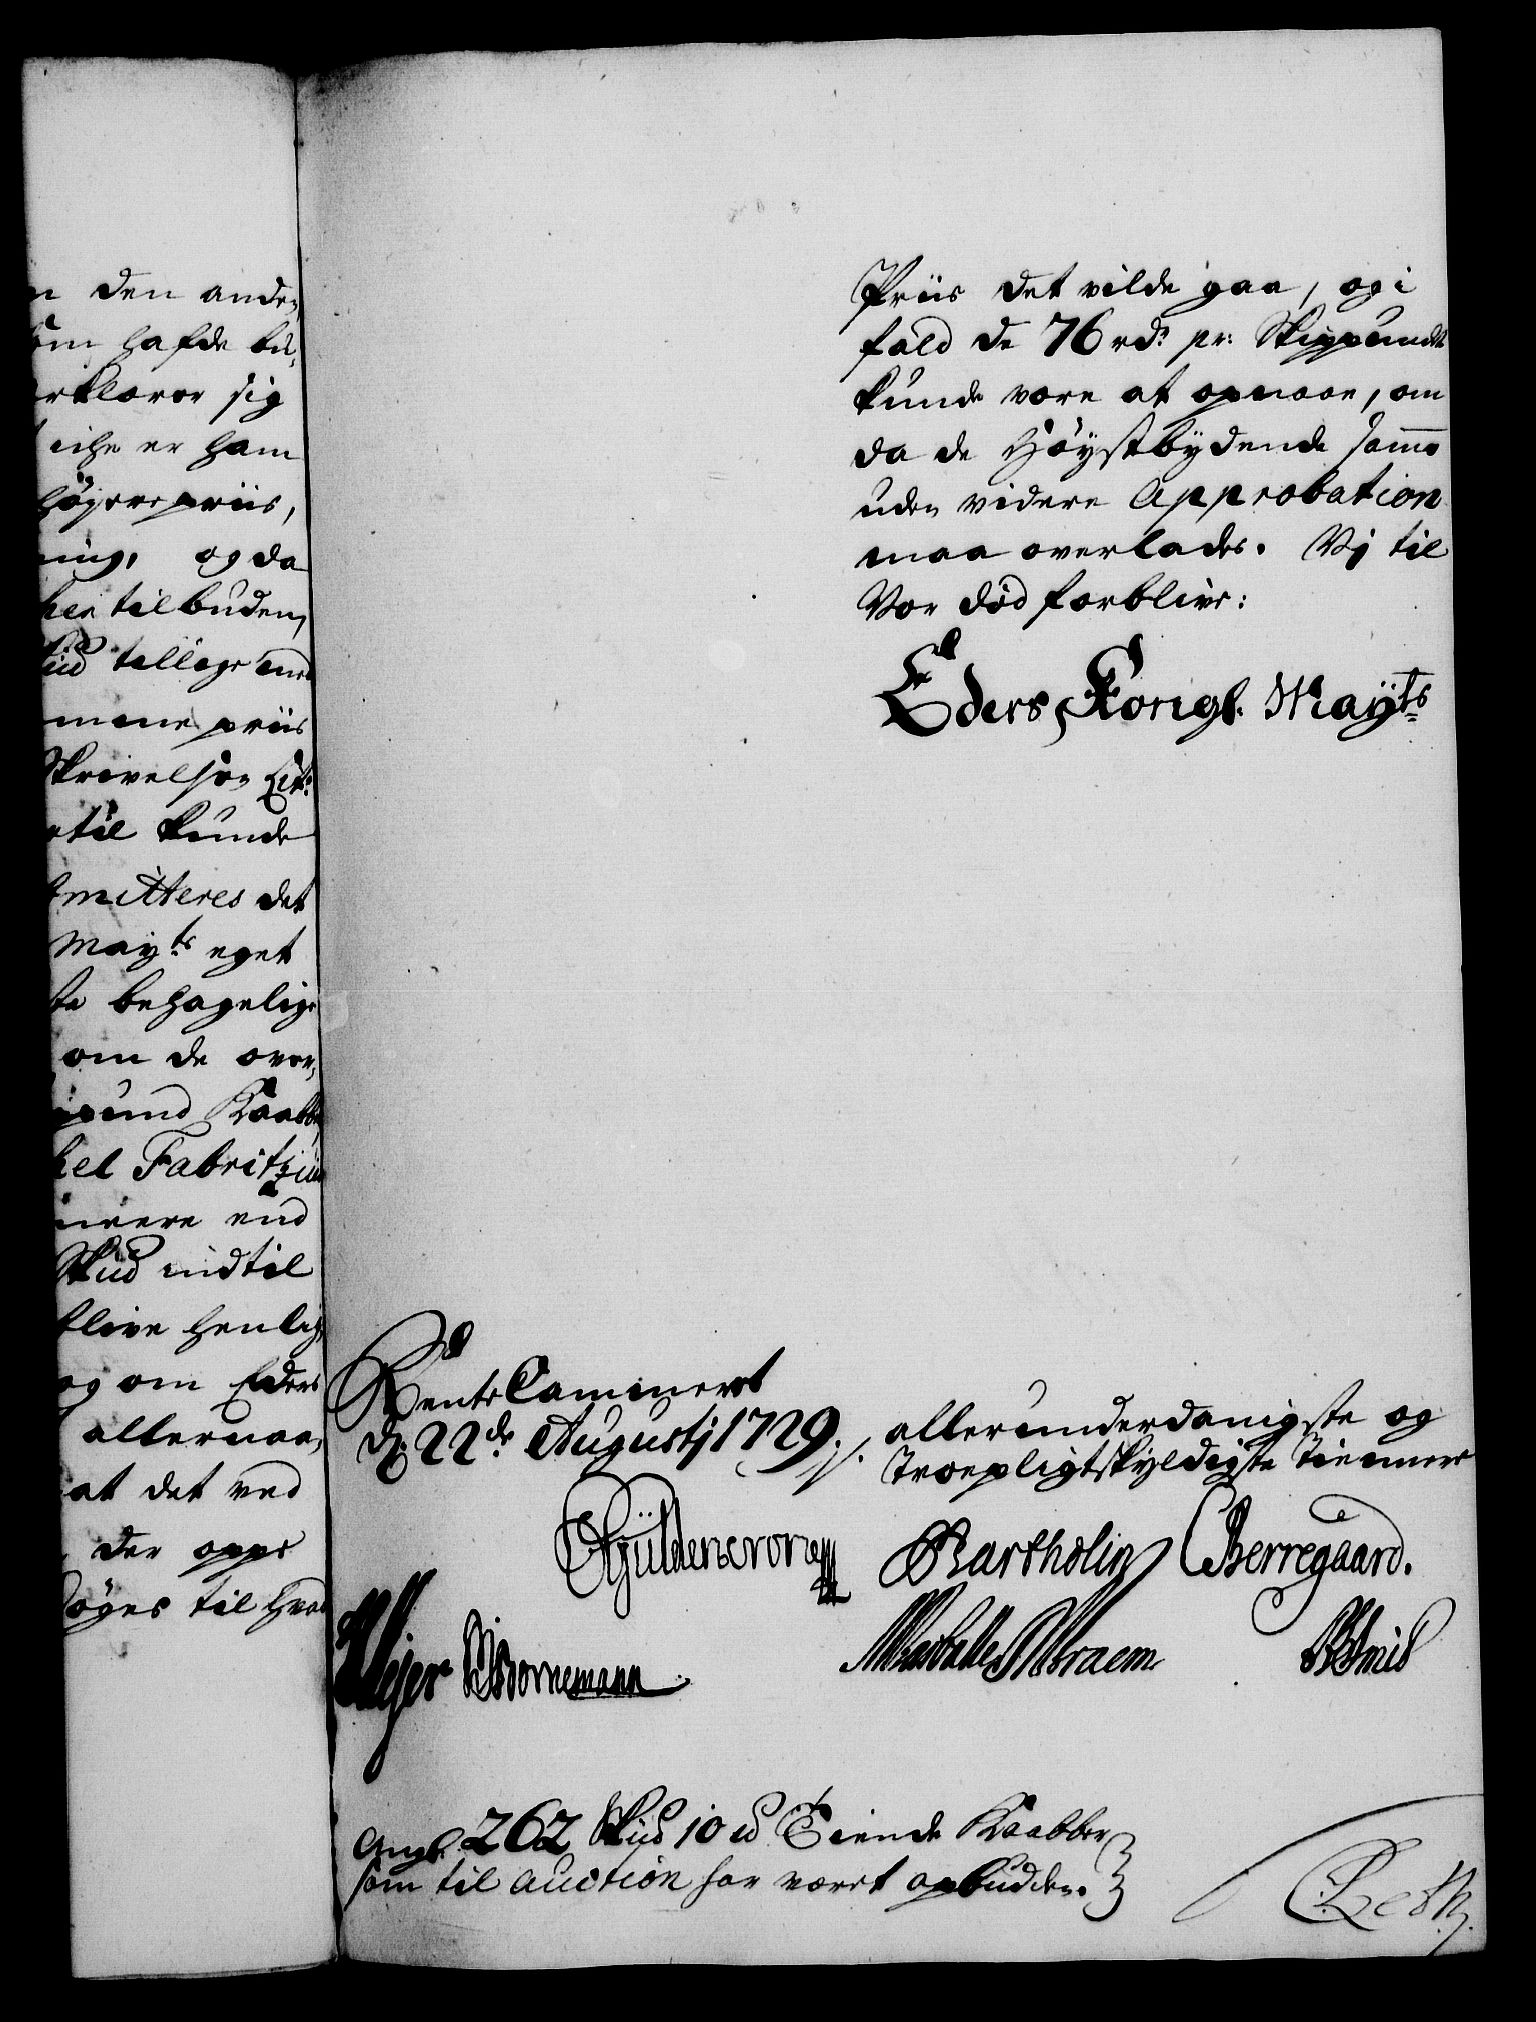 n den anden,
som hafde bu,
erklærer sig
iche er ham
høyere priis,
ning, og da
her tilbuden,
tillige med
mene priis
Skrivelsen Lit:
til kunde
mitteres det
Mayts eget
te behagelige
om de over,
pund Kaabber
hel Fabritzius
meere end
Skud indtil
blive henlig,
og om Eders
allernaa,
at det ved
der opp
søges til hvad
Priis det vilde gaa, og i
fald de 76 rdr pr: Skippundt
kunde være at opnaae, om
da de Høystbydende samme
uden videre Approbation
maa overlades. Vj til
Vor død forblive:
Eders Kongl. Mayts
RenteCammeret
d: 22de Augustj 1729 ./.
allerunderdanigste og
Troepligtskyldigste Tienere
Güldencrone
Bartholin CBerregaard.
Mejer Bornemann
Braem
Angl. 262 Skud 10 ℔ Tiende Kaabber
som til Auction har været opbudden.